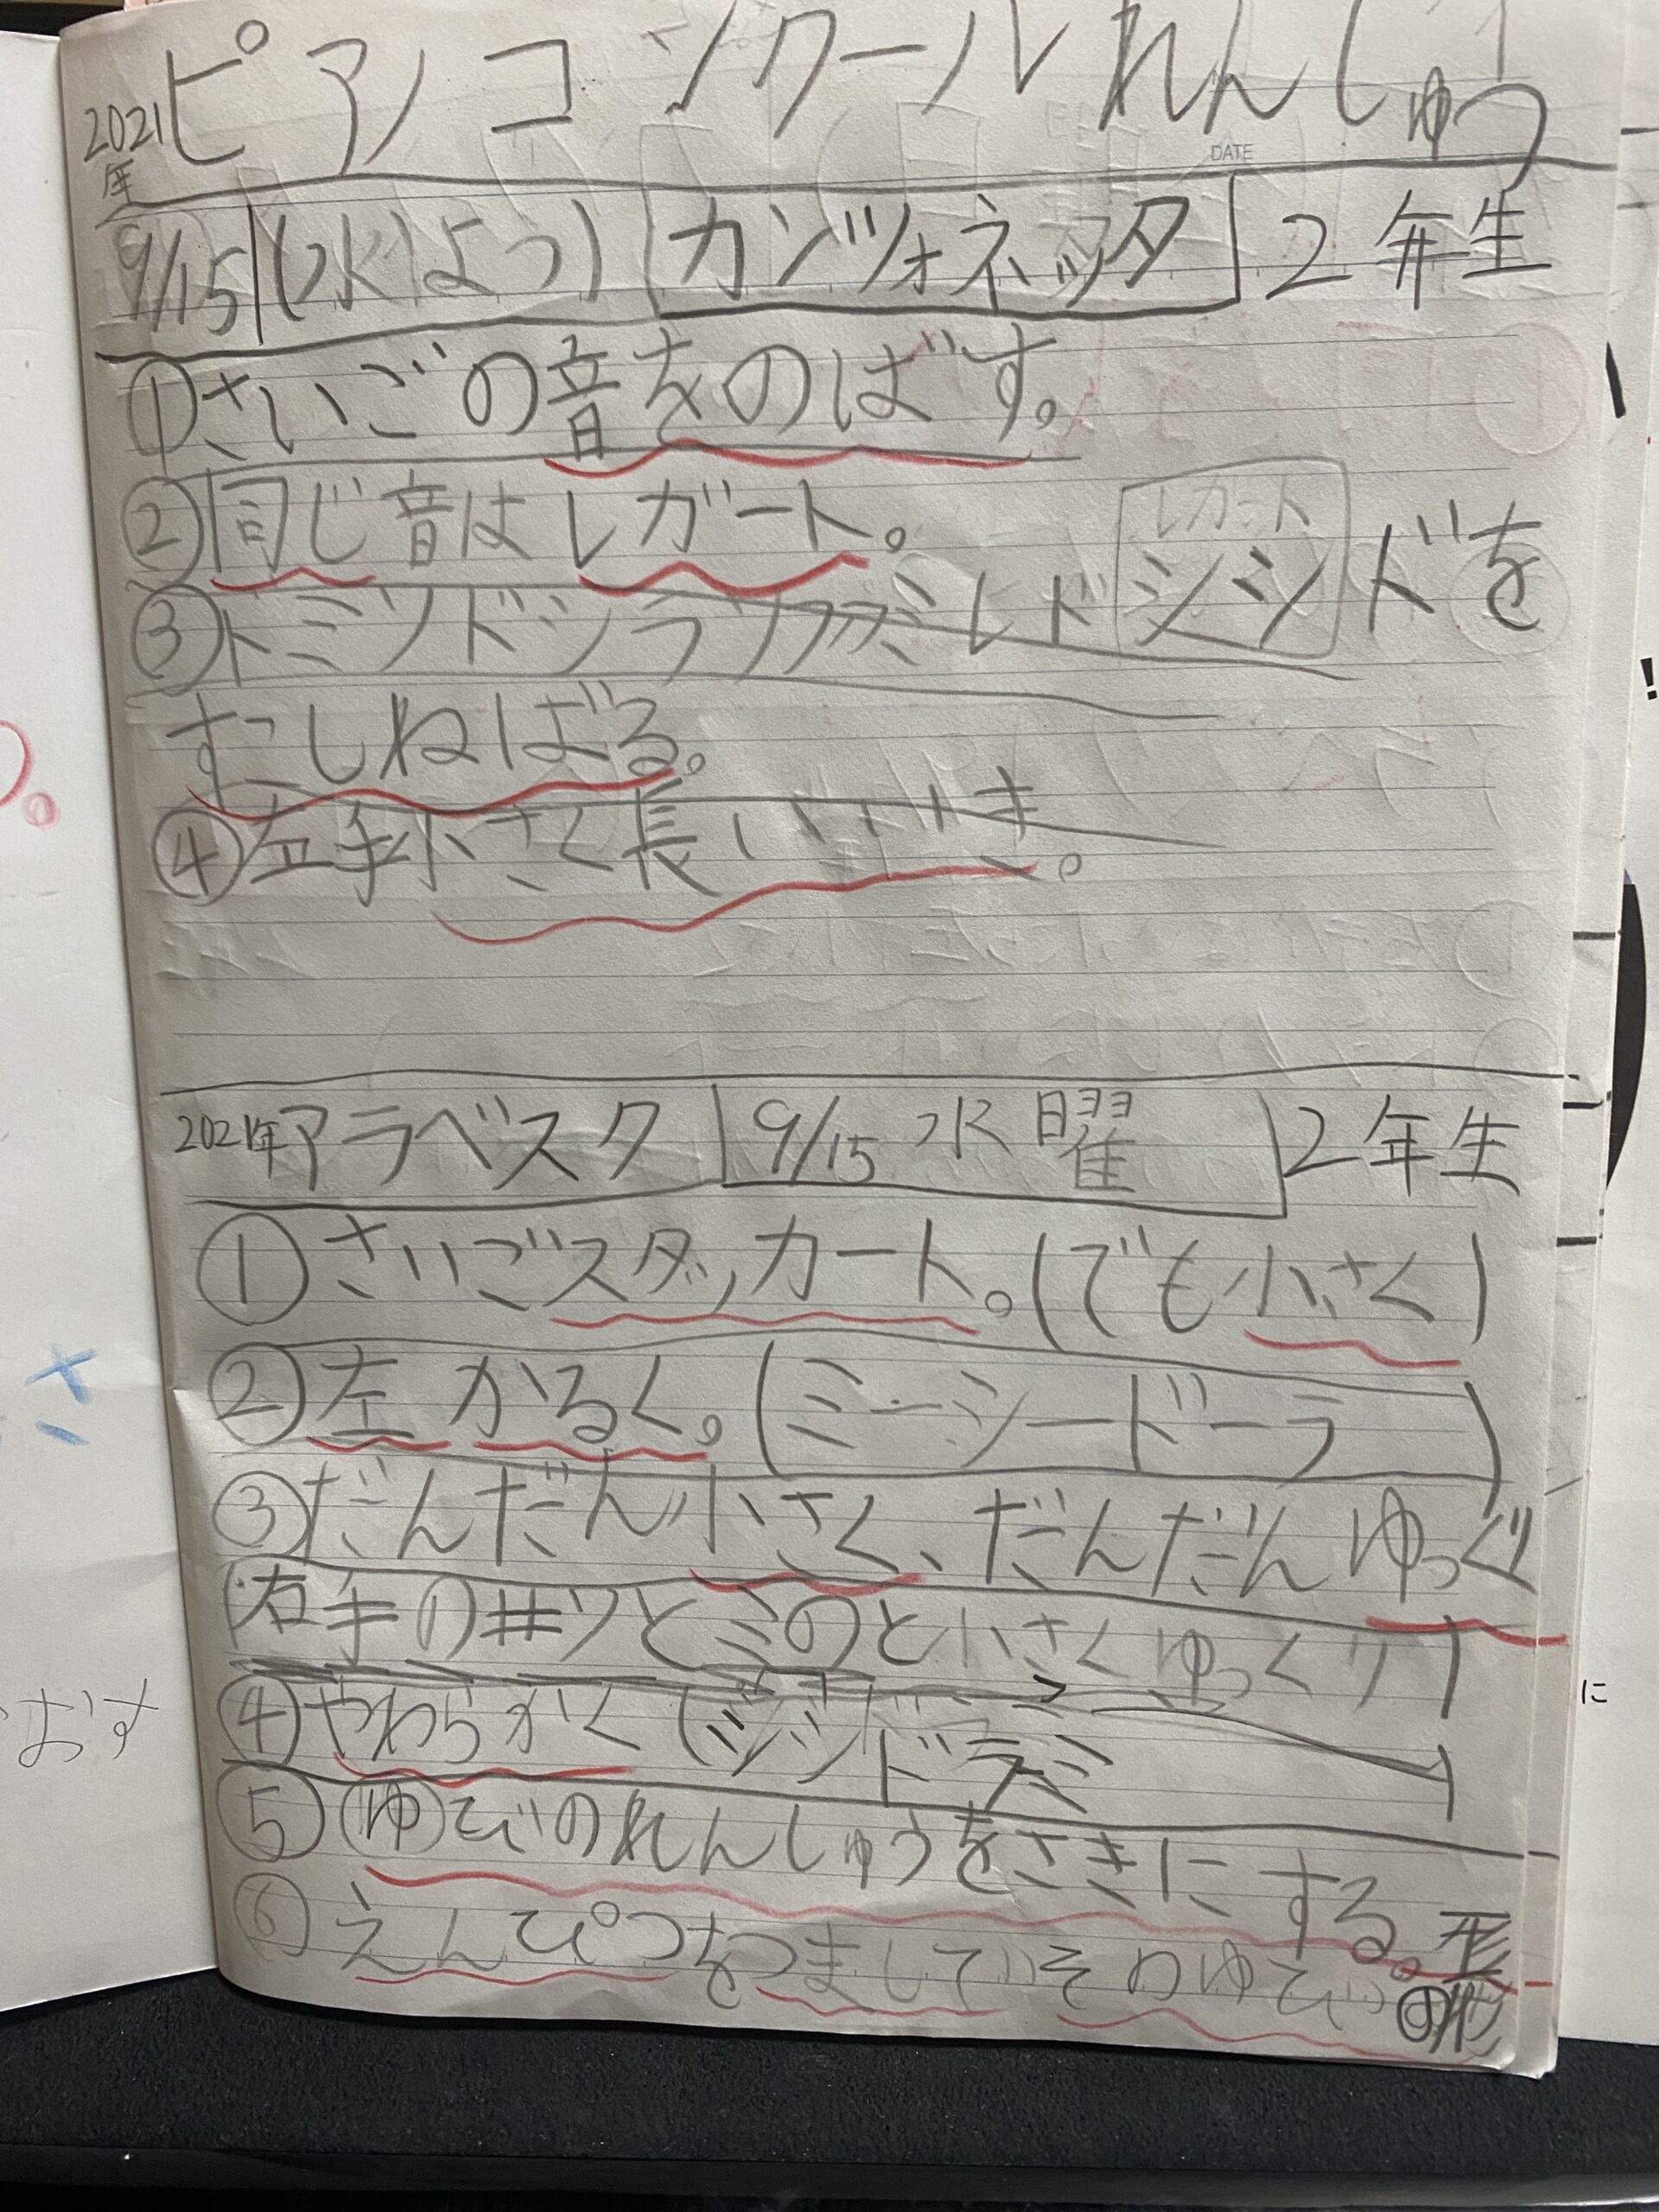 ピアノコンクールれんしゅう
2021年
DATE
9/15 (水)よう) カンツォネッタ 2年生
①さいごの音をのばす。
②同じ音はレガート。
レガート
③ドミソドシラソファミレド シシ ドを
すこしねばる。
④左手小さく長いいき。
2021年アラベスク 9/15 水曜 2年生
① さいごスタッカート。(でも小さく)
② 左 かるく。(ミーシードーラ)
③だんだん小さく、だんだんゆっくり
(右手の#ソとミのと小さくゆっくり)
④やわらかく(シシドラミ)
⑤ゆびのれんしゅうをさきにする。
⑥えんぴつをつまして